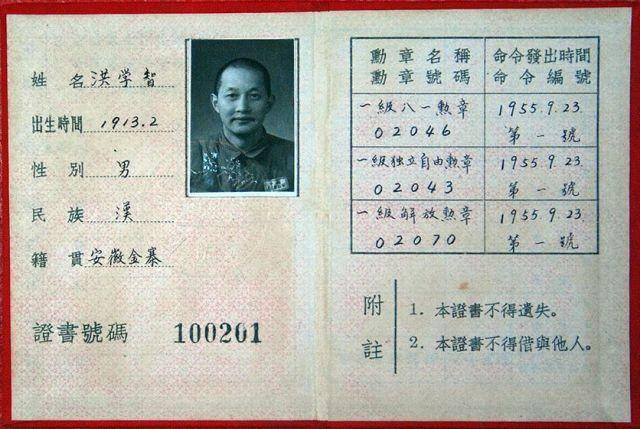 姓 名 洪学智
出生時間 1913.2
性 別 男
民 族 漢
籍 貫 安徽金寨
證書號碼 100201
勳章名稱 命令發出時間
勳章號碼 命令編號
一級八一勲章 1955.9.23
02046 第一號
一級独立自由勲章 1955.9.23
02043 第一號
一級解放勲章 1955.9.23
02070 第一號
附註
1. 本證書不得遺失。
2. 本證書不得借與他人。